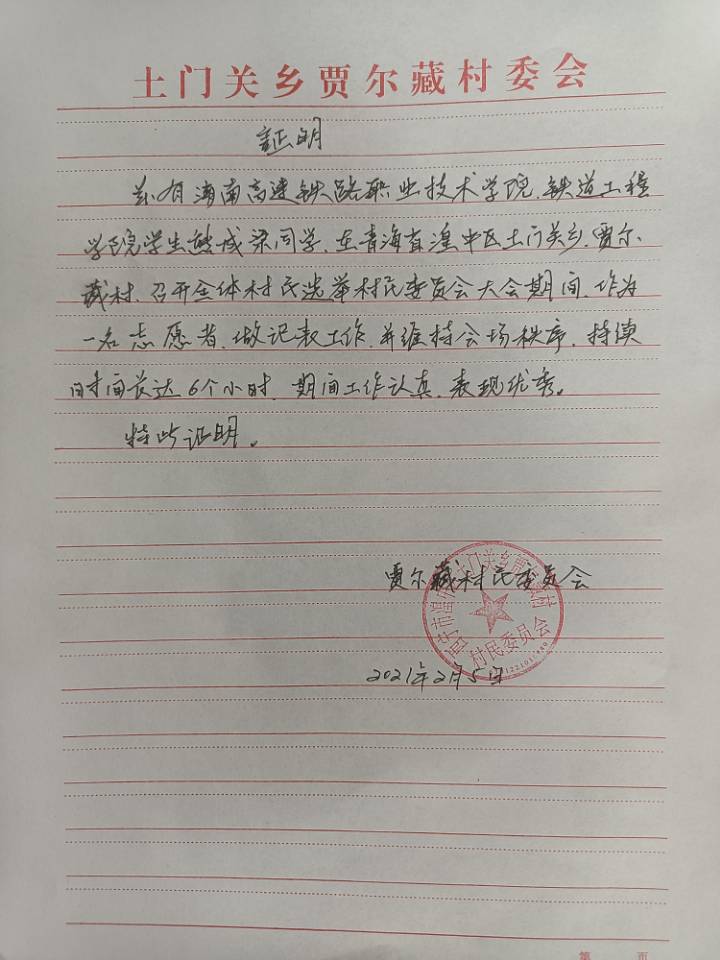 土门关乡贾尔藏村委会
证明
兹有海南高速铁路职业技术学院,铁道工程
学院学生 成梁同学,在青海省湟中区土门关乡,贾尔
藏村,召开全体村民选举村民委员会大会期间,作为
一名志愿者,做记录工作,并维持会场秩序,持续
时间长达6个小时,期间工作认真,表现优秀。
特此证明。
贾尔藏村民委员会
村民委员会
2021年2月5日
第 页